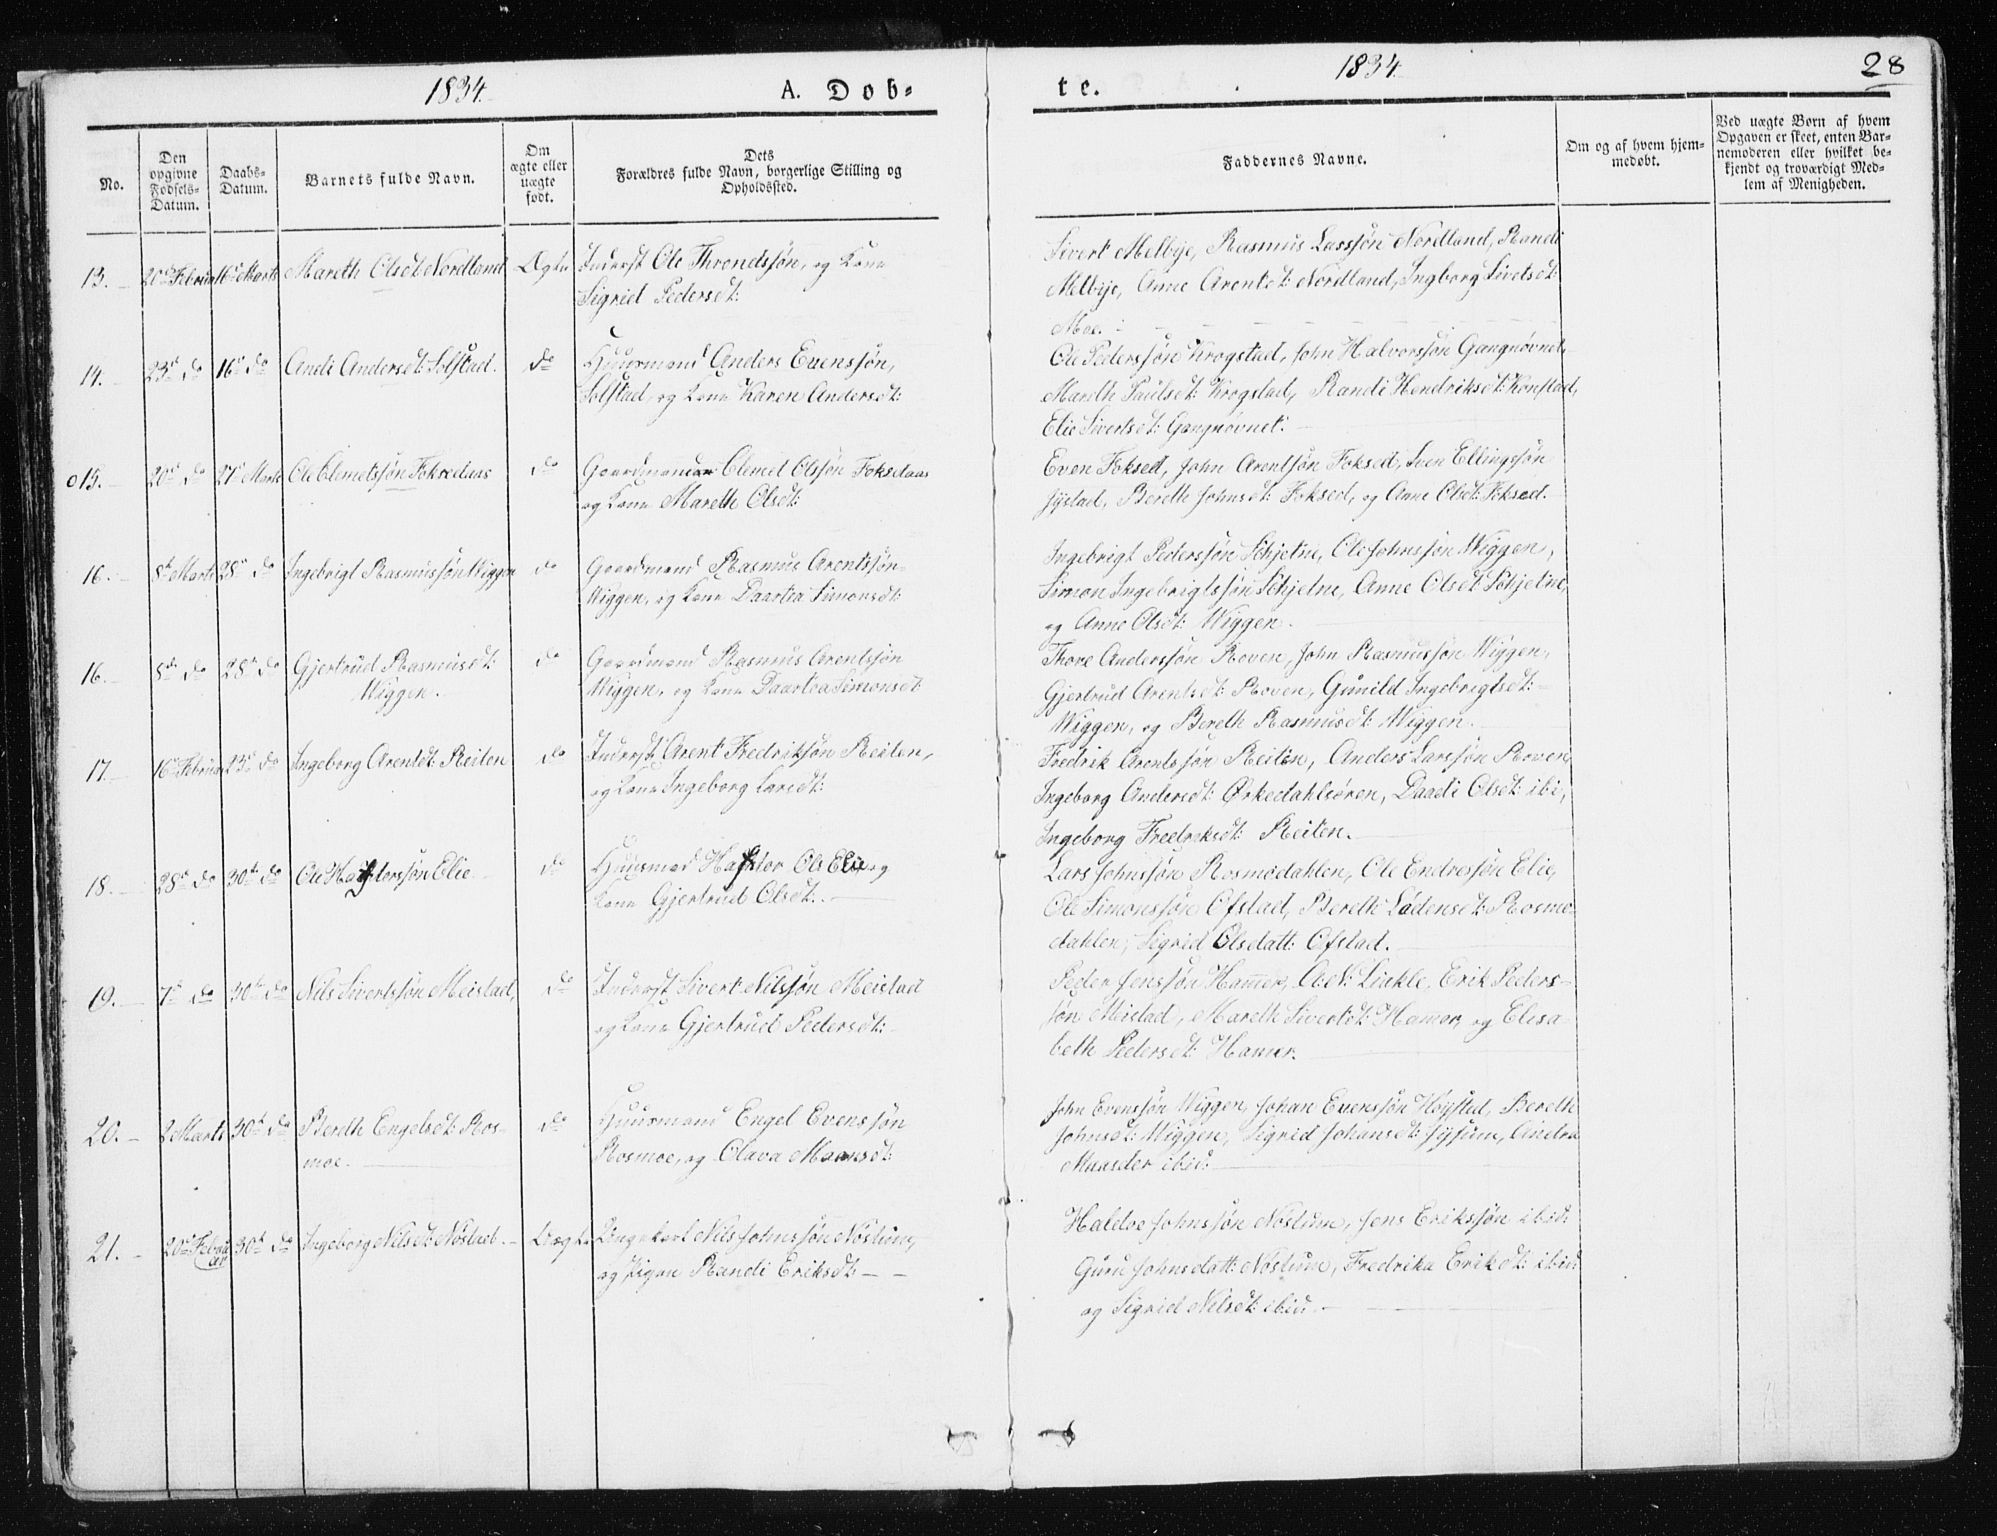 1834.
A. Dob-
te.
1834.
28
No.
Den
opgivne
Fødsels-
Datum.
Daabs-
Datum.
Barnets fulde Navn.
Om
ægte eller
uægte
født.
Dets
Forældres fulde Navn, borgerlige Stilling og
Opholdssted.
Faddernes Navne.
Om og af hvem hjem-
medøbt.
Ved uægte Børn af hvem
Opgaven er skeet, enten Bar-
nemoderen eller hvilket be-
kjendt og troværdigt Med-
lem af Menigheden.
13. 20de Februar 16de Marts Mareth Olsdt Nordland Ægte Inderst Ole Throndssøn, og Kone
Sigrid Pedersdt:
Sivert Melbye, Rasmus Larssøn Nordland, Randi
Melbye, Anne Arentdt: Nordland, Ingborg Sivetsdt:
Moe.
14. 23d do 16d do Andi Andersdt: Solstad. do Huusmand Anders Evenssøn,
Solstad, og Kone Karen Andersdt:
Ole Pederssøn Krogstad, John Halvorssøn Gangnøvnet,
Mareth Paulsdt: Krogstad, Randi Hendriksdt: Konstad,
Elie Sivertsdt: Gangnøvnet.
015. 20d do 27d Marts Ole Clemetssøn Foksedaas do Gaardmand Clemet Olssøn Foksedaas
og Kone Mareth Olsdt:
Even Foksed, John Arentsøn Foksed, Sven Ellingssøn
Systad, Bereth Johnsdt: Foksed, og Anne Olsdt: Foksed.
16. 8de Marts 28de do Ingebrigt Rasmussøn Wiggen do Gaardmand Rasmus Arentssøn
Wiggen, og Kone Daartea Simonsdt:
Ingebrigt Pederssøn Schjetne, Ole Johnssøn Wiggen,
Simon Ingebrigtssøn Schjetne, Anne Olsdt: Schjetne,
og Anne Olsdt: Wiggen.
16. 8de do 28de do Gjertrud Rasmusdt:
Wiggen. do Gaardmand Rasmus Arentssøn
Wiggen, og Kone Daartea Simonsdt
Thore Anderssøn Roven, John Rasmussøn Wiggen,
Gjertrud Arentsdt: Roven, Gunild Ingebrigtsdt:
Wiggen, og Bereth Rasmusdt: Wiggen.
17. 16de Februar 23d do Ingeborg Arentdt: Reiten do Inderst Arent Fredriksøn Reiten,
og Kone Ingeborg Larsdt:
Fredrik Arentssøn Reiten, Anders Larssøn Roven,
Ingeborg Andersdt: Ørkedahlsøren, Daadi Olsdt: ibi,
Ingeborg Fredriksdt: Reiten.
18. 28de do 30te do Ole Haftorssøn Elie do Huusmad Haftor Ols Elie og
Kone Gjertrud Olsdt.
Lars Johnssøn Rosmedahlen, Ole Endressøn Elie,
Ole Simonssøn Ofstad, Bereth Lødensdt: Rosme-
dahlen, Sigrid Olsdatt: Ofstad.
19. 7de do 30te do Nils Sivertssøn Meistad, do Inderst Sivert Nilssøn Meistad
og Kone Gjertrud Pedersdt:
Peder Jenssøn Hamer, O: N: Linkle, Erik Peders-
søn Meistad, Mareth Sivertdt: Hamer, og Elisa-
beth Pedersdt: Hamer.
20. 2 Marts 30te do Bereth Engelsdt: Ros-
moe. do Huusmand Engel Evenssøn
Rosmoe, og Olava Maansdt:
John Evenssøn Wiggen, Johan Evenssøn Høysted, Bereth
Johnsdt: Wiggen, Sigrid Johansdt: Sysum, Andrea
Muasder ibid:
21. 20de Febru
ar 30te do Ingeborg Nilsdt: Nøstueb. Uægte Ungekarl Nils Johnssøn Nøstum,
og Pigen Randi Eriksdt:
Haldoe Johnssøn Nøstum, Jens Erikssøn ibid:
Guru Johnsdatt: Nøstum, Fredrika Erikdt: ibid
og Sigrid Nilsdt: ibid.